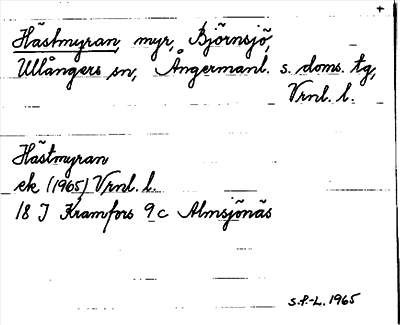 +
Hästmyran, myr, Björnsjö,
Ullångers sn, Ångermanl. s. doms. tg,
Vrnl. l.
Hästmyran
ek (1965) Vrnl. l.
18 J Kramfors 9 c Almsjönäs
S.P.-L. 1965